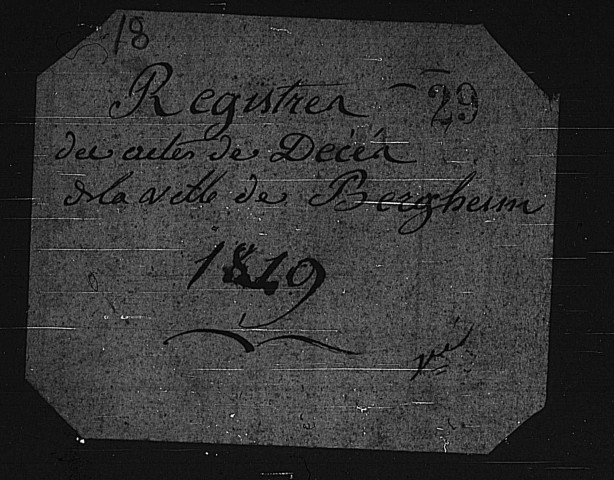 18
Registres 29
des actes de Décés
de la ville de Bergheim
1819